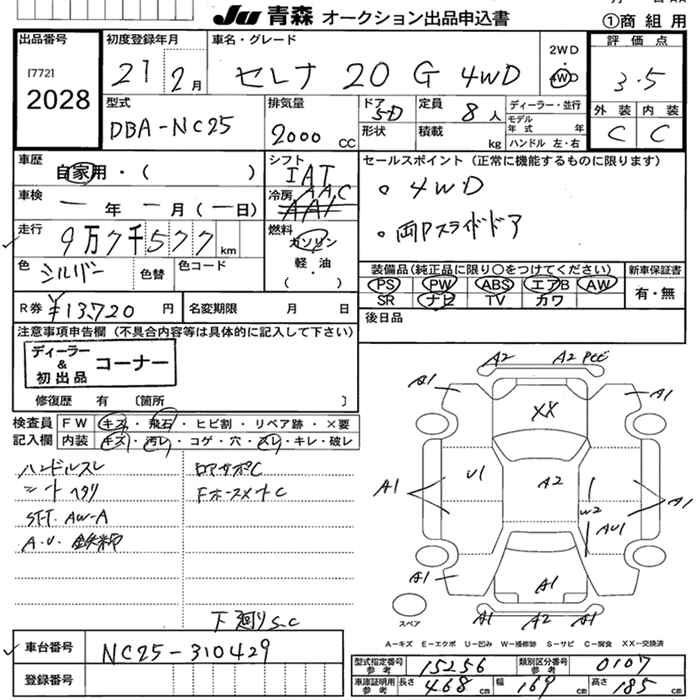 Ju 青森 オークション出品申込書
①商組用
出品番号
[772]
2028
初度登録年月
21 2月
車名・グレード
セレナ 20 G 4WD
2WD
4WD
評価点
3.5
型式
DBA-NC25
排気量
2000 cc
ドア
5D
形状
定員
8人
積載
kg
ディーラー・並行
モデル年式 年
ハンドル 左・右
外装
C
内装
C
車歴
自家用・( )
シフト
IAT
車検
ー年ー月(ー日)
冷房
AAC
走行
9万7千577km
燃料
ガソリン
軽・油
( ・ )
セールスポイント(正常に機能するものに限ります)
。4WD
。両Pスライドドア
色
シルバー
色替
色コード
R券
¥13,720円
名変期限 月 日
装備品(純正品に限り○をつけてください)
PS PW ABS エアB AW
SR ナビ TV カワ
新車保証書
有・無
後日品
注意事項申告欄(不具合内容等は具体的に記入して下さい)
ディーラー
&
初出品
コーナー
修復歴 有 〔箇所 〕
検査員
記入欄
FW キズ・飛石・ヒビ割・リペア跡・×要
内装 キズ・汚レ・コゲ・穴・スレ・キレ・破レ
ハンドルスレ
シートヘタリ
ST-T. AW-A
A.U. 鉄粉
ロアサポC
Fホースメント C
下廻りS.C
A2 A2 PCE
A1 A1
XX
A1 U1 A2 W2 AU1 A1
A1 A1 A1
A1 A2 A1
スペア
A-キズ E-エクボ U-凹み W-補修跡 S-サビ C-腐食 XX-交換済
車台番号
NC25-310429
登録番号
型式指定番号
参考
15256
類別区分番号
参考
0107
車庫証明用
参考
長さ 468 cm
幅 169 cm
高さ 185 cm